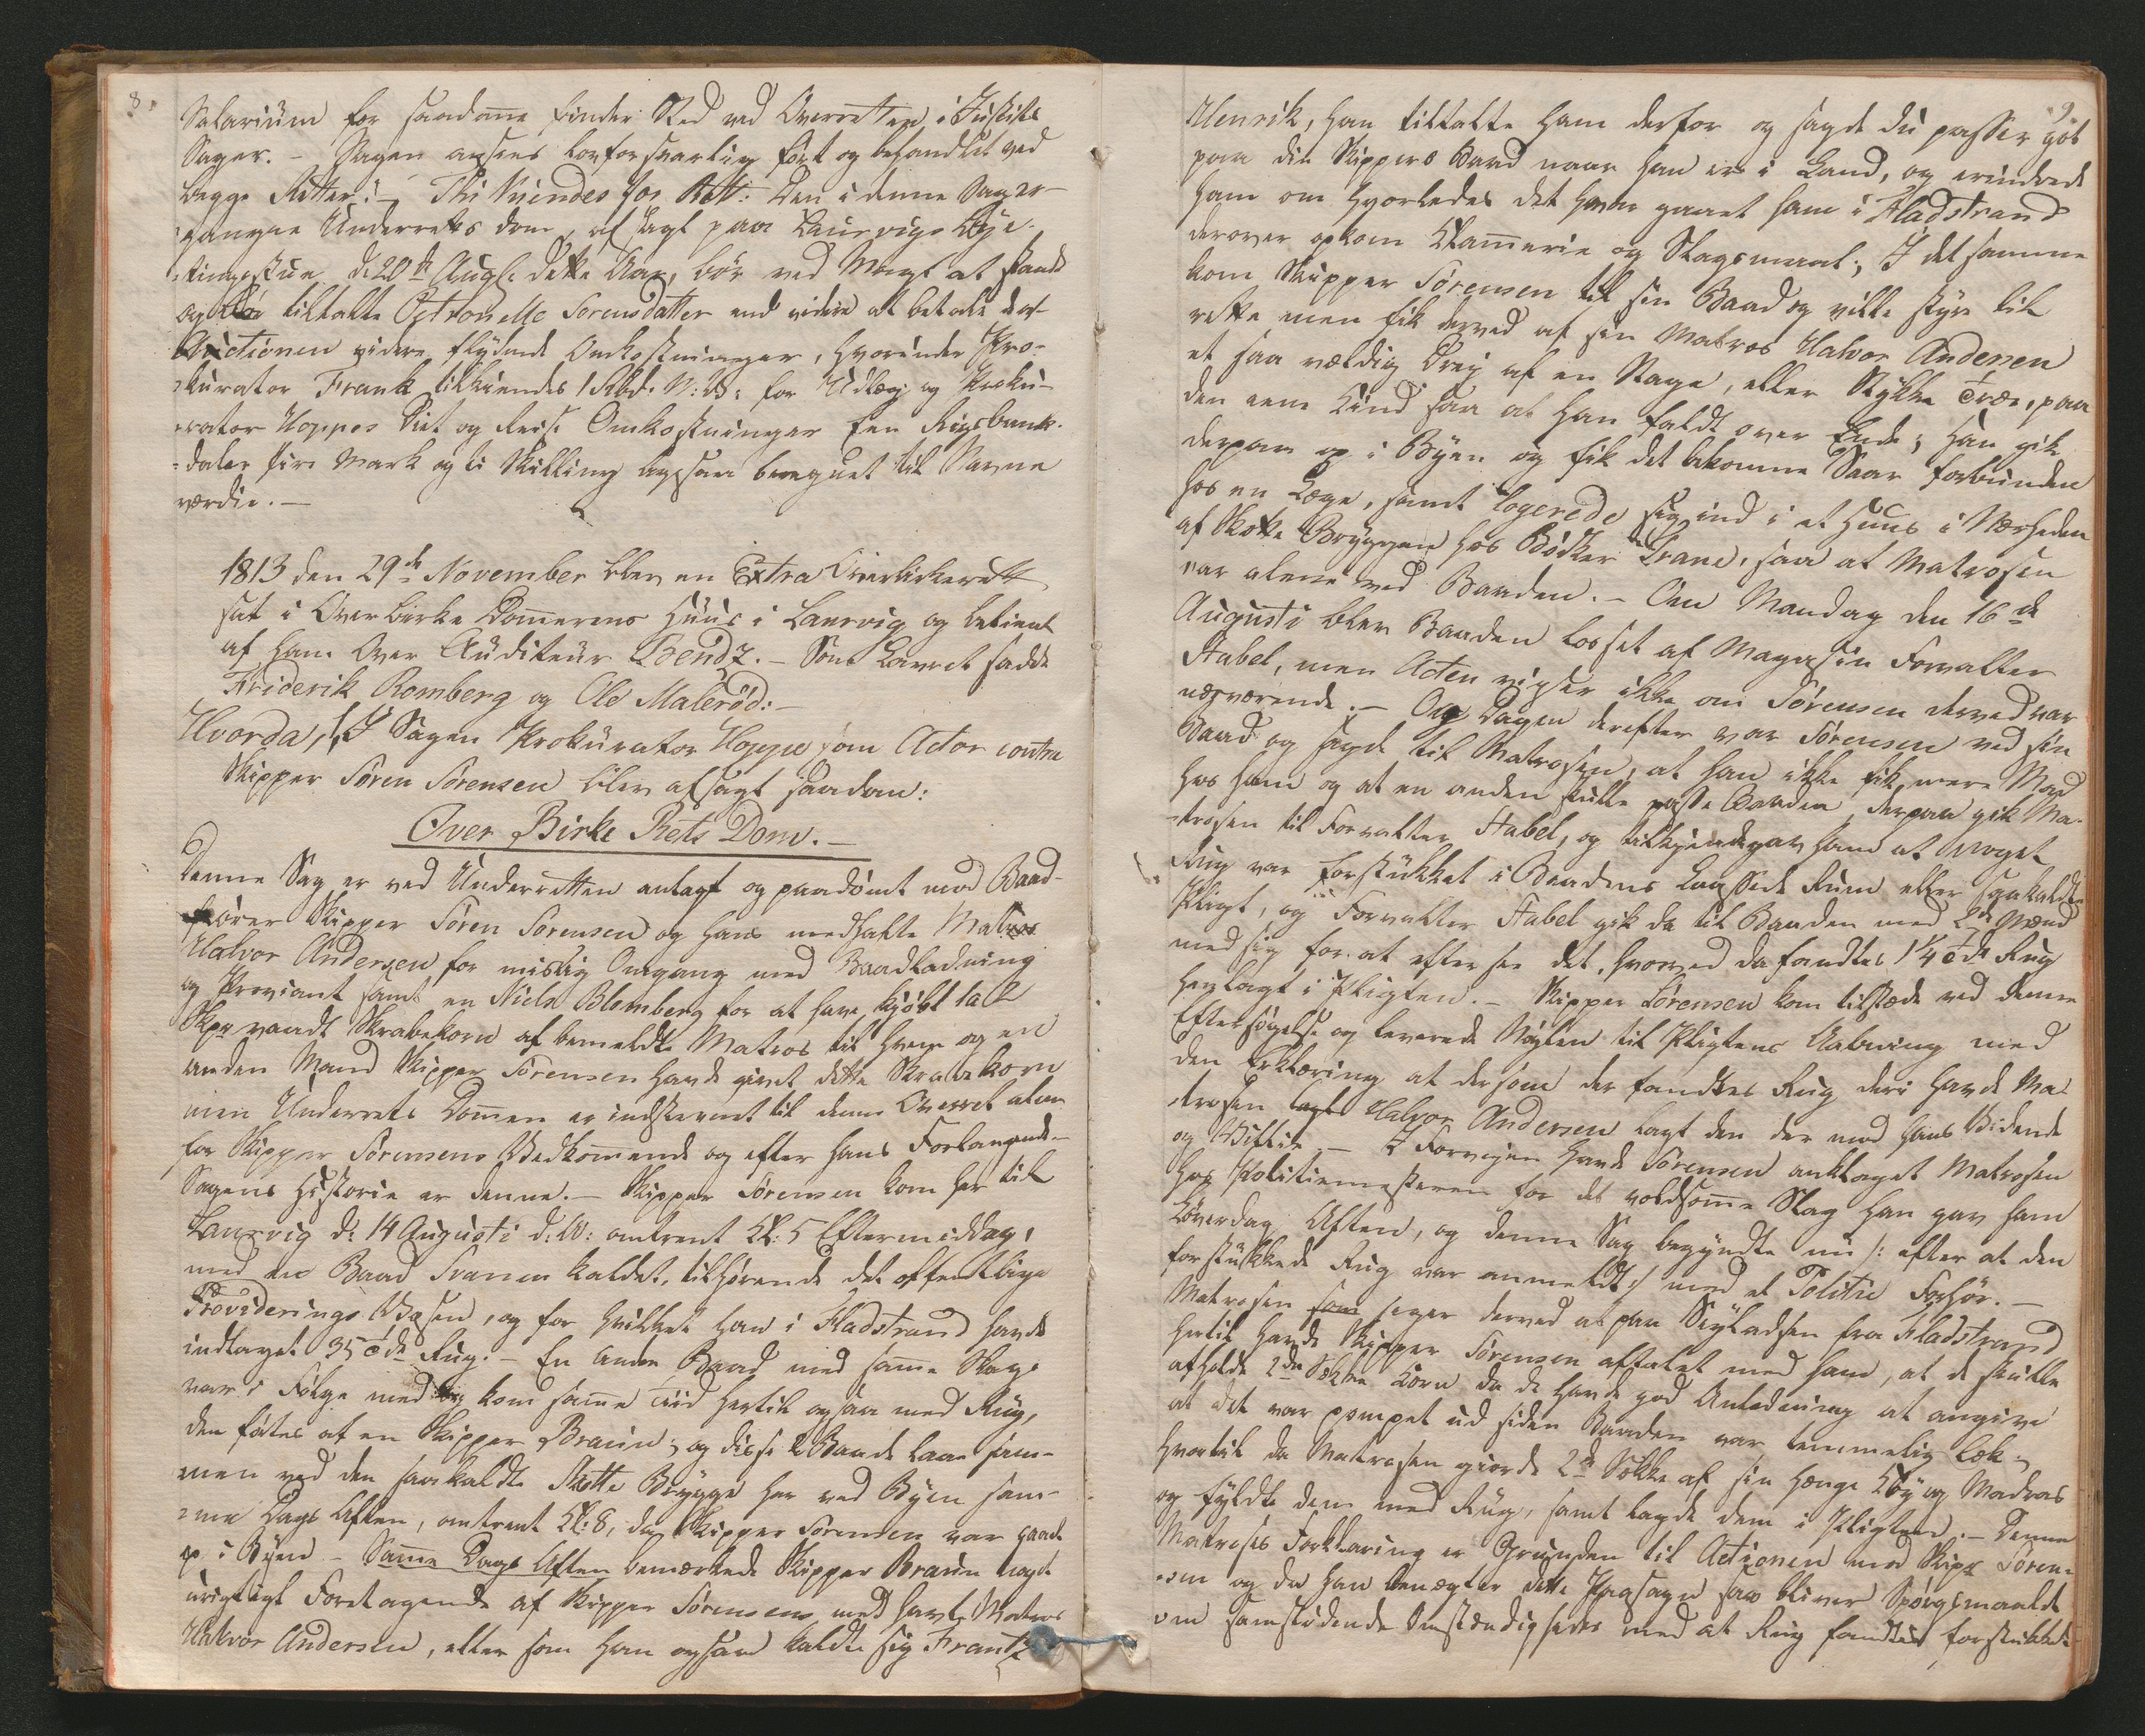 8.
Salarium for saadanne finder Sted ved Overretten i Justits
Sager. – Sagen ansees lovforsvarlig ført og behandlet ved
begge Retter. – Thi kiendes for Ret: Den i denne Sag er-
gangne Underrets Dom, afsagt paa Laurvigs Bye-
tingstue d: 20de Augt: dette Aar, bør ved Magt at stande
og bør tiltalte Petronelle Sorensdatter end videre at betale de af
Actionen videre flydende Omkostninger, hvorunder Pro-
kurator Frank tilkiendes 1 Rbd. N: V: for Udlæg og Proku-
rator Hoppes Diet og Reise Omkostninger Een Rigsbank-
daler fire Mark og ti Skilling ligesaa beregnet til Navne
værdie. –
1813 den 29de November blev en Extra Overbirkeret
sat i Overbirke Dommerens Huus i Laurvig og betient
af ham Over Auditeur Bendz. – Som Lavret sadde
Friderik Romberg og Ole Malerød: –
Hvorda, 1, I Sagen Prokurator Hoppe som Actor contra
Skipper Søren Sørensen blev afsagt saadan:
Over Birke Rets Dom. –
Denne Sag er ved Underretten anlagt og paadømt mod Baad-
fører Skipper Søren Sørensen og hans medhafte Matros
Halvor Andersen for mislig Omgang med Baadladning
og Proviant samt en Niels Blomberg for at have kjøbt 1 a 2
Skpr vaadt Skrabekorn af bemeldte Matros til hvem og en
anden Mand Skipper Sørensen havde givet dette Skrabekorn
men Underrets Dommen er indstevnet til denne Overret alene
for Skipper Sørensens Vedkommende og efter hans Forlangende –
Sagens Historie er denne. – Skipper Sørensen kom her til
Laurvig d: 14 Augusti d: A: omtrent Kl: 5 Eftermiddag,
med en Baad Svanen kaldet, tilhørende det offentlige
Provederings Væsen, og for hvilket han i Fladstrand havde
indtaget 35 Tdr Rug. – En anden Baad med samme Slags
var i Følge med og kom samme Tiid hertil ogsaa med Rug,
den førtes af en Skipper Braun; og disse 2 Baade laae sam-
men ved den saakaldte Skotte Brygge her ved Byen sam-
me Dags Aften, omtrent Kl: 8, da Skipper Sørensen var gaaet
op i Byen – Samme Dags Aften bemærkede Skipper Braun noget
urigtigt Foretagende af Skipper Sørensens medhavte Matros
Halvor Andersen, eller som han ogsaa kaldte sig Frantz
9.
Henrik, han tiltalte ham derfor og sagde du passer got
paa din Skippers Baad naar han er i Land, og erindrede
ham om hvorledes det havde gaaet ham i Fladstrand
derover opkom Klammerie og Slagsmaal; I det samme
kom Skipper Sørensen til sin Baad og vilde styre til
rette men fik derved af sin Matros Halvor Andersen
et saa vældig Drag af en Stage, eller Stykke Træe, paa
den eene Kind saa at han faldt over Ende; han gik
derpaa op i Byen og fik det bekomne Saar forbunden
hos en Læge, samt logerede sig ind i et Huus i Nærheden
af Skotte Bryggen hos Bødker Trane, saa at Matrosen
var alene ved Baaden. – Om Mandag den 16de
Augusti blev Baaden losset af Magasin Forvalter
Stabel, men Acten viser ikke om Sørensen derved var
nærværende. – Dagen derefter var Sørensen ved sin
Baad og sagde til Matrosen, at han ikke fik mere Mad
hos ham og at en anden skulle passe Baaden, derpaa gik Ma-
trosen til Forvalter Stabel, og tilkiendegav ham at noget
Rug var forstukket i Baadens Laassede Rum eller saakaldte
Pligt, og Forvalter Stabel gik da til Baaden med 2de Mænd
med sig for at efter see det, hvorved da fandtes 1 1/4 Tde Rug
henlagt i Pligten. – Skipper Sørensen kom tilstæde ved denne
Eftersøgelse og leverede Nøglen til Pligtens Aabning med
den Erklæring at dersom der fandtes Rug deri havde Ma-
trosen Halvor Andersen lagt den der mod hans Vidende
og Villie – I Forveien havde Sørensen anklaget Matrosen
hos Politiemesteren for det voldsomme Slag han gav ham
Løverdag Aften, og denne Sag begyndte nu /: efter at den
forstukkede Rug var anmeldt :/ med et Politie Forhør. –
Matrosen siger derved at paa Seyladsen fra Fladstrand
hertil havde Skipper Sørensen aftalet med ham, at de skulle
afholde 2de Sækker Korn da de havde god Anledning at angive
at det var pompet ud siden Baaden var temmelig læk –
hvortil da Matrosen giorde 2de Sække af sin Hænge Køy og Madras
og fyldte dem med Rug, samt lagde dem i Pligten. – Denne
Matroses Forklaring er Grunden til Actionen mod Skipr Søren-
sen og da han benægter dette Paasagn saa bliver Spørgsmaalet
om samstødende Omstændigheder med at Rug fandtes forstukket